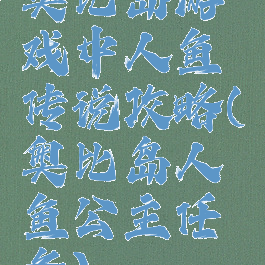 奥比岛游
戏中人鱼
传说攻略(
奥比岛人
鱼公主任
务)